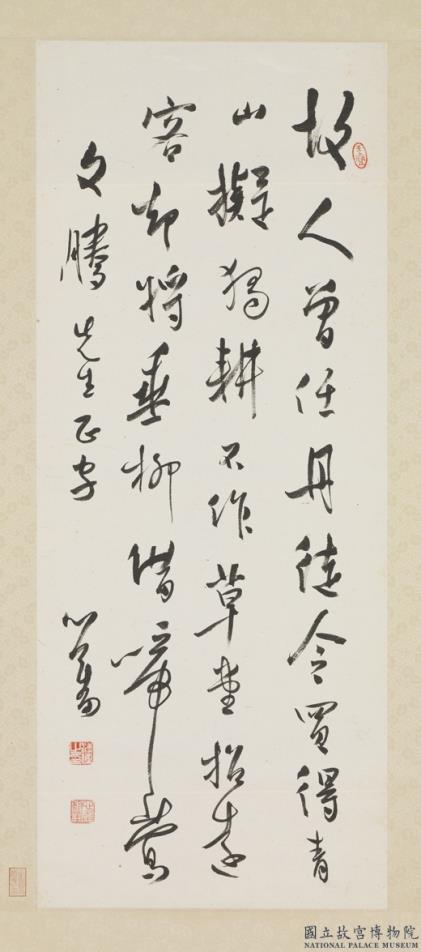 故人曾任丹徒令買得青
山擬獨耕不作草堂招遠
客却將垂柳借啼鶯
文騰先生正字
心畬
國立故宮博物院
NATIONAL PALACE MUSEUM